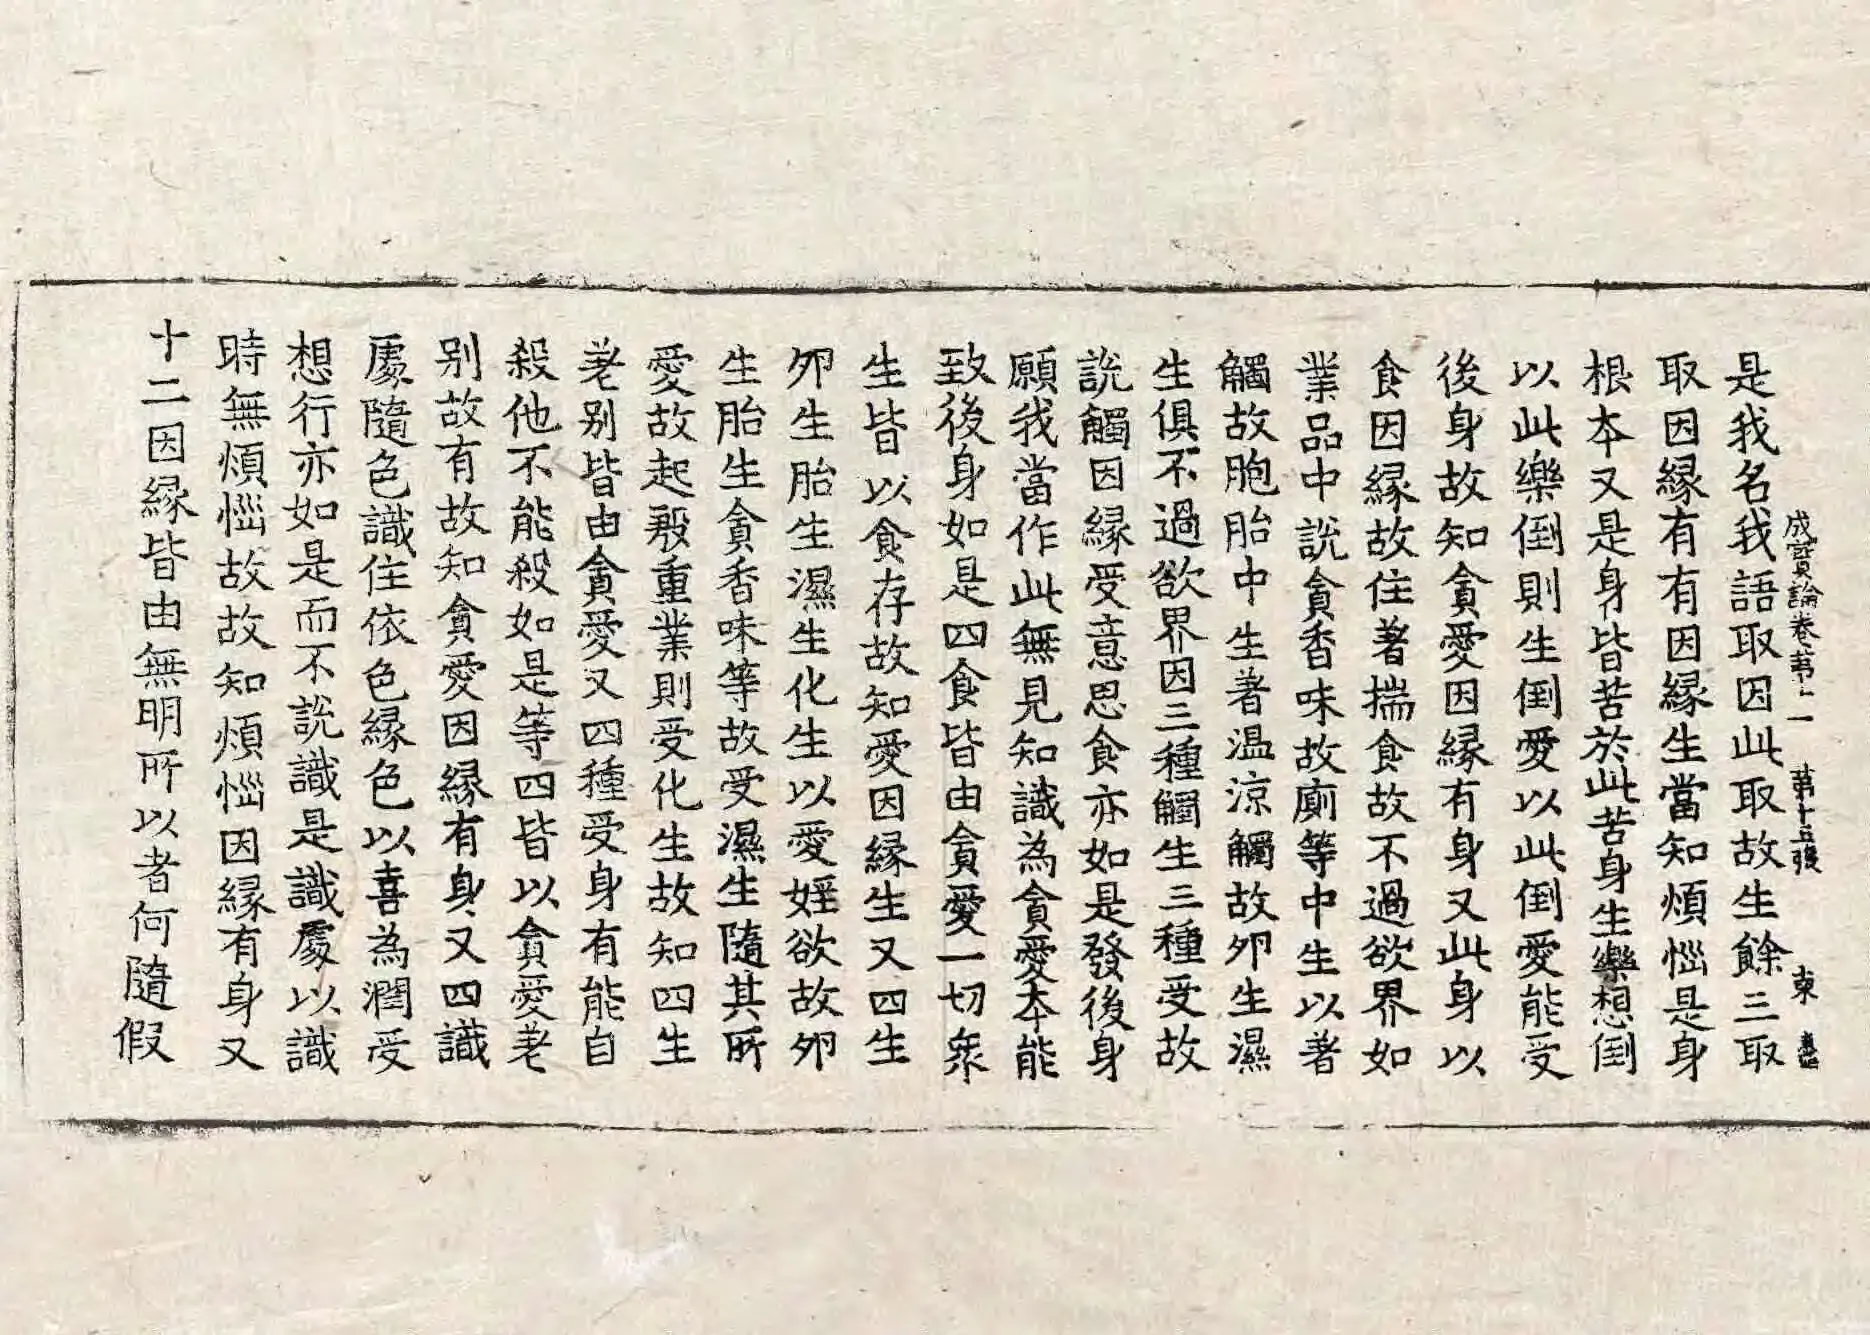 是我名我語取因此取故生餘三取
成實論卷苐十一 苐十五張 東 
取因緣有有因緣生當知煩惱是身
根本又是身皆苦於此苦身生樂想倒
以此樂倒則生倒愛以此倒愛能受
後身故知貪愛因緣有身又此身以
食因緣故住著揣食故不過欲界如
業品中說貪香味故廁等中生以著
觸故胞胎中生著温涼觸故夘生濕
生俱不過欲界因三種觸生三種受故
說觸因緣受意思食亦如是發後身
願我當作此無見知識為貪愛本能
致後身如是四食皆由貪愛一切衆
生皆以食存故知愛因緣生又四生
夘生胎生濕生化生以愛婬欲故夘
生胎生貪香味等故受濕生隨其所
愛故起殷重業則受化生故知四生
差别皆由貪愛又四種受身有能自
殺他不能殺如是等四皆以貪愛差
别故有故知貪愛因緣有身又四識
處隨色識住依色緣色以喜為潤受
想行亦如是而不說識是識處以識
時無煩惱故故知煩惱因緣有身又
十二因緣皆由無明所以者何隨假